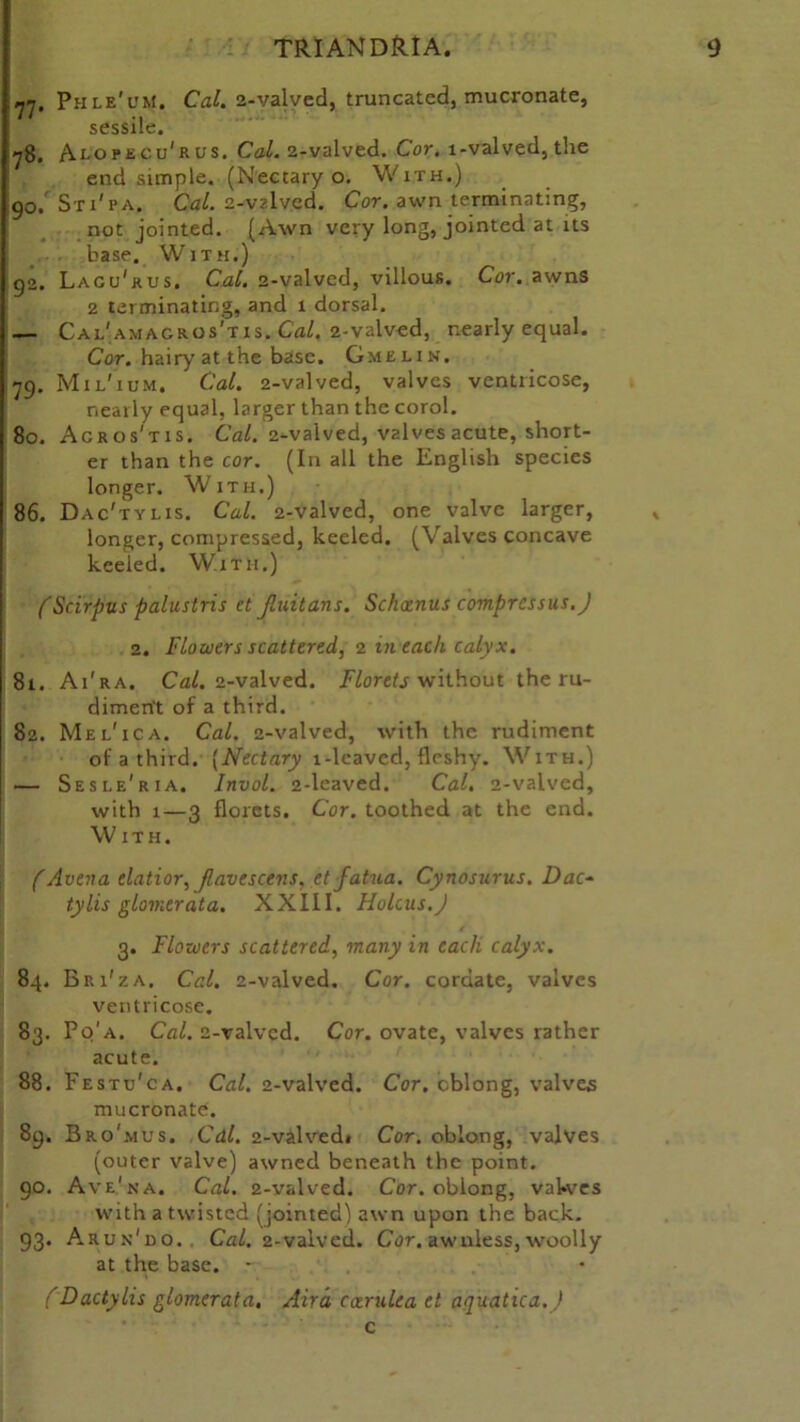 TRIANDRIA. 9
77. PHLE'UM. Cal. 2-valved, truncated, mucronate,
sessile.
78. ALOPECU'RUS. Cal. 2-valved. Cor. 1-valved, the
end simple. (Nectary 0. WITH.)
90. STI'PA. Cal. 2-valved. Cor. awn terminating,
not jointed. (Awn very long, jointed at its
base. WITH.)
92. LAGU'RUS. Cal. 2-valved, villous. Cor. awns
2 terminating, and 1 dorsal.
— CAL'AMAGROS'TIS. Cal. 2-valved, nearly equal.
Cor. hairy at the base. GMELIN.
79. MIL'IUM. Cal. 2-valved, valves ventricose,
nearly equal, larger than the corol.
80. AGROS'TIS. Cal. 2-valved, valves acute, short-
er than the cor. (In all the English species
longer. WITH.)
86. DAC'TYLIS. Cal. 2-valved, one valve larger,
longer, compressed, keeled. (Valves concave
keeled. WITH.)
(Scirpus palustris et fluitans. Schœnus compressus.)
2. Flowers scattered, 2 in each calyx.
81. AI'RA. Cal. 2-valved. Florets without the ru-
diment of a third.
82. MEL'ICA. Cal. 2-valved, with the rudiment
of a third. (Nectary 1-leaved, fleshy. WITH.)
— SESLE'RIA. Invol. 2-leaved. Cal. 2-valved,
with 1—3 florets. Cor. toothed at the end.
WITH.
(Avena elatior, flavescens, et fatua. Cynosurus. Dac-
tylis glomerata. XXIII. Holcus.)
3. Flowers scattered, many in each calyx.
84. BRI'ZA. Cal. 2-valved. Cor. cordate, valves
ventricose.
83. PO'A. Cal. 2-valved. Cor. ovate, valves rather
acute.
88. FESTU'CA. Cal. 2-valved. Cor. oblong, valves
mucronate.
89. BRO'MUS. Cal. 2-valved. Cor. oblong, valves
(outer valve) awned beneath the point.
90. AVE'NA. Cal. 2-valved. Cor. oblong, valves
with a twisted (jointed) awn upon the back.
93. ARUN'DO. Cal. 2-valved. Cor. awnless, woolly
at the base.
(Dactylis glomerata. Aira cærulea et aquatica.)
C